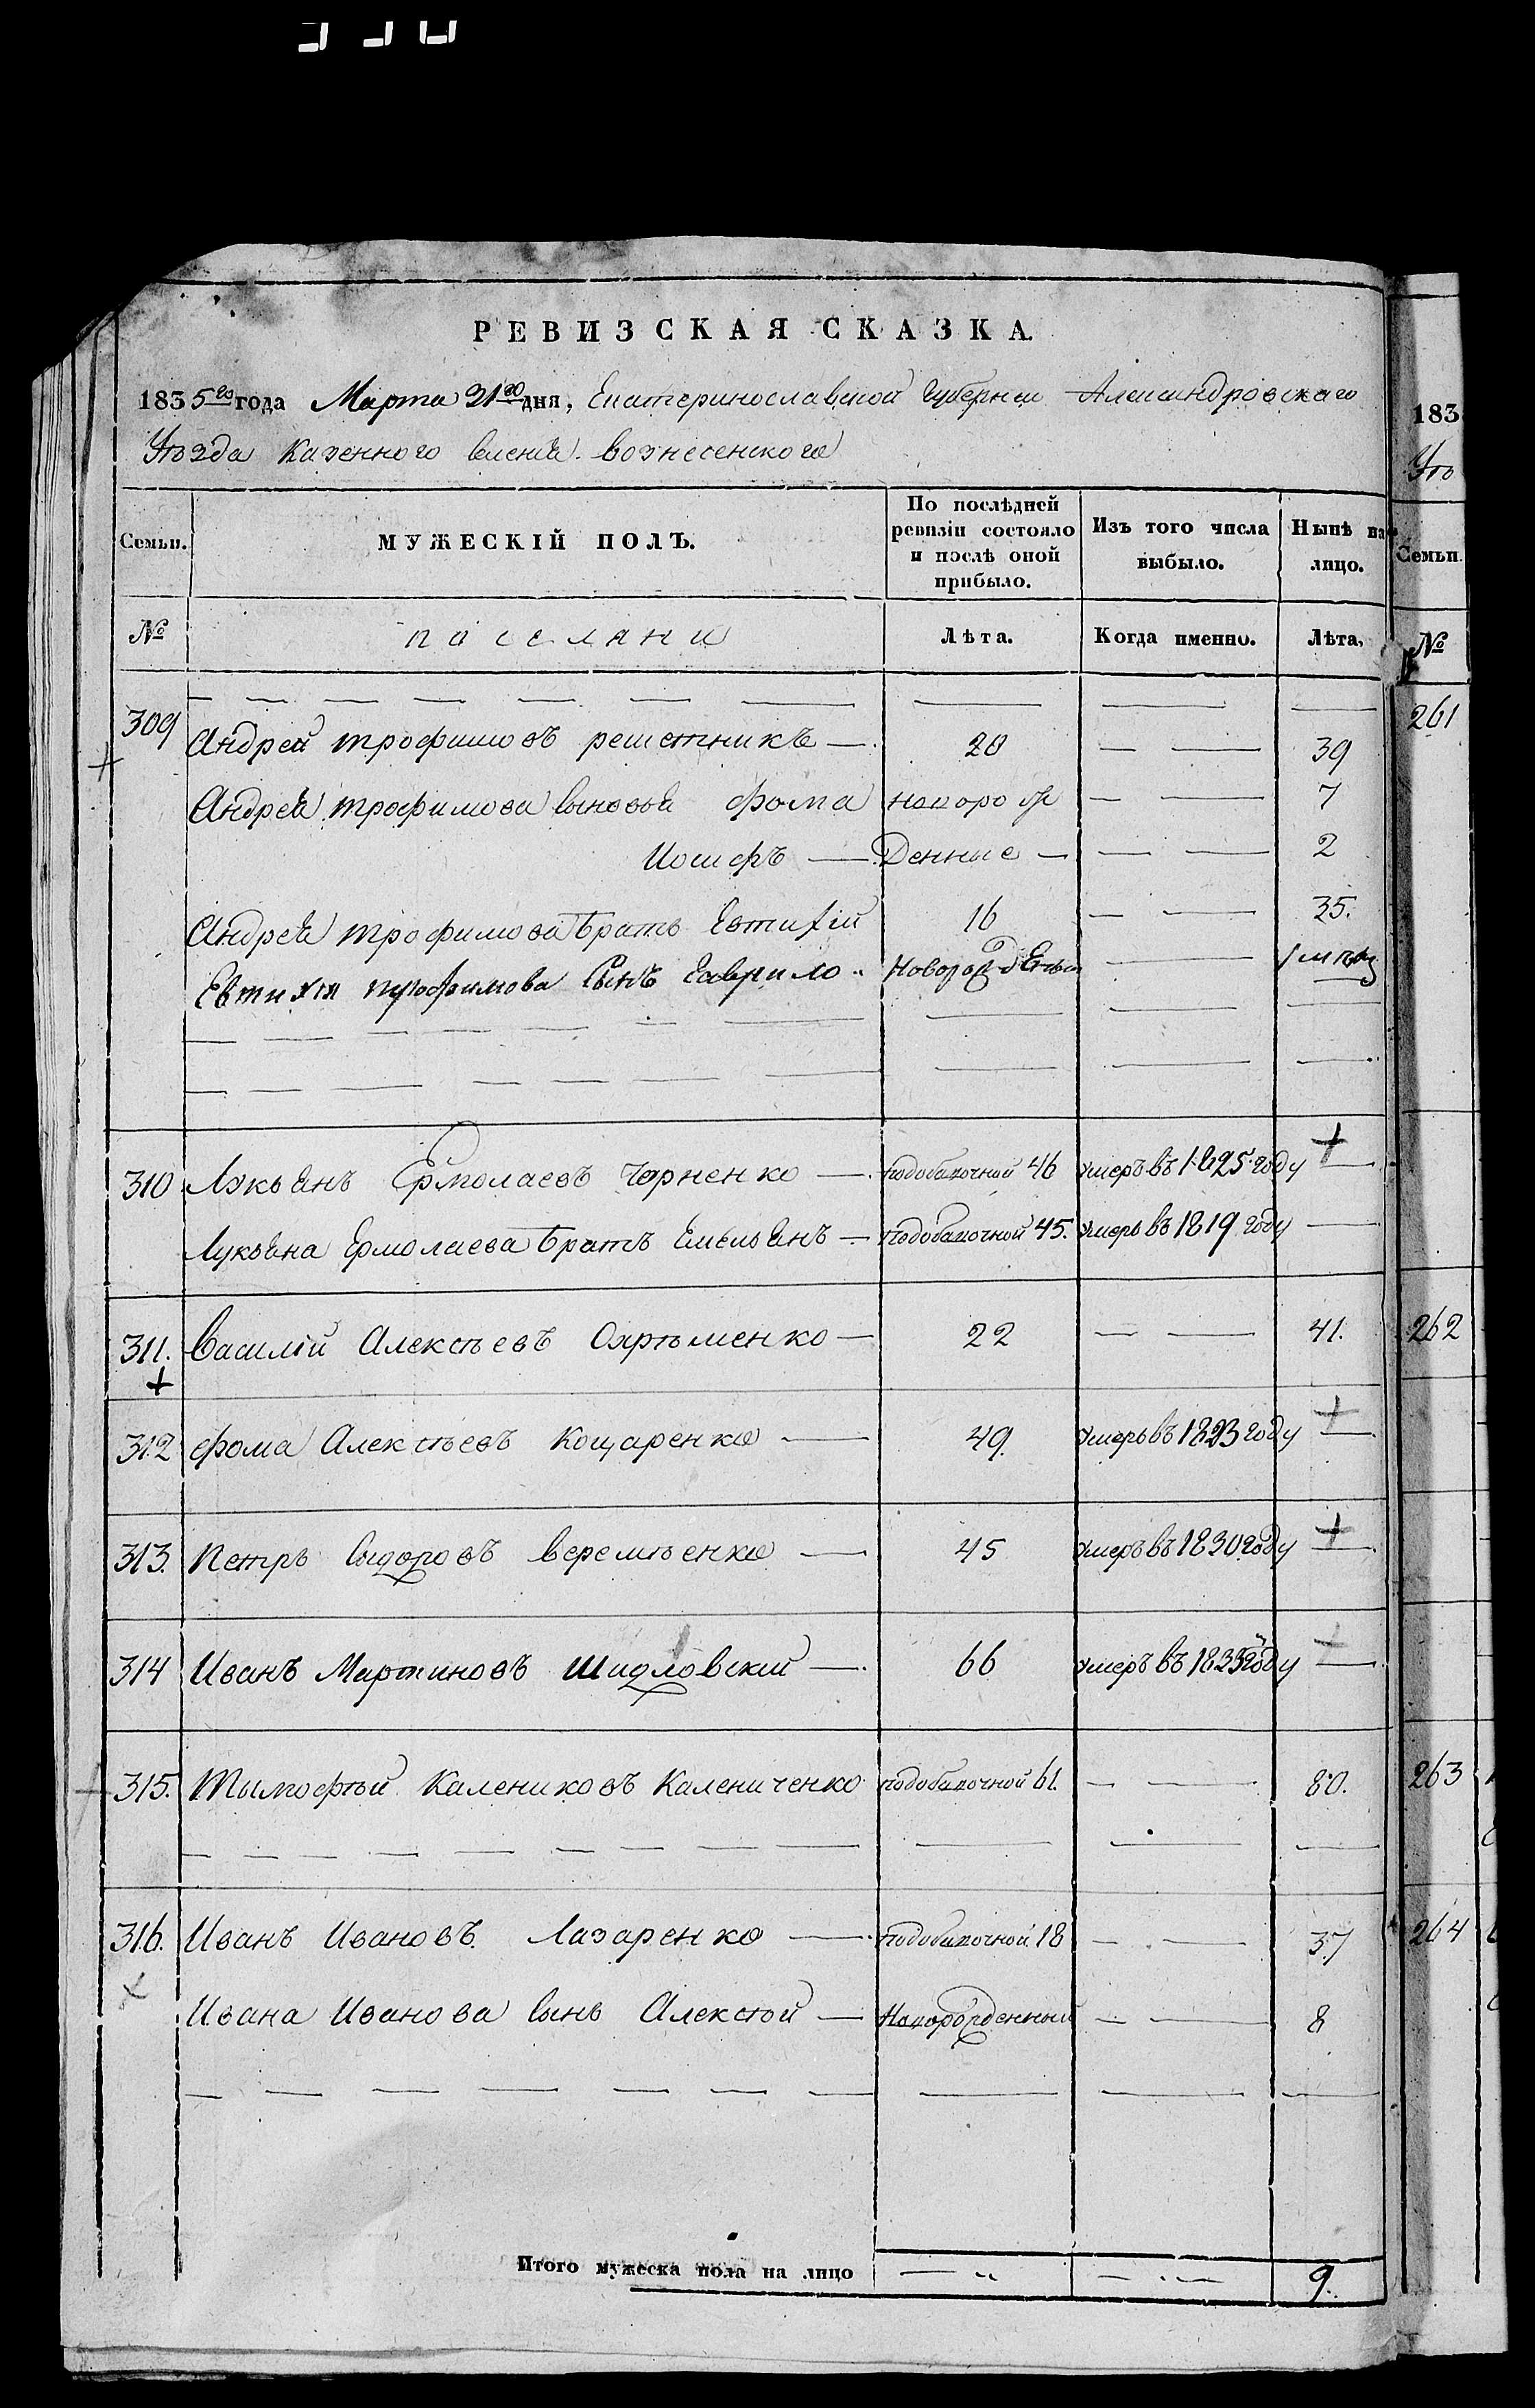 РЕВИЗСКАЯ СКАЗКА.
1835го года Марта 21го дня, Екатеринославской Губернии Александровского
Уѣзда Казенного селенія Вознесенского
Семьи. МУЖЕСКІЙ ПОЛЪ. По послѣдней ревизіи состояло и послѣ оной прибыло. Изъ того числа выбыло. Нынѣ на лицо.
№ поселяни Лѣта. Когда именно. Лѣта,
309 Андрей трофимовъ решетникъ — 20 — — 39
Андрея трофимова сыновья фома новорож — — 7
Иосифъ — Денные — — — 2
Андрея трофимова братъ Евтихій 16 — — 35.
Евтихія трофимова Сынъ Гаврило новорожденъ —
310 Лукьянъ Ермолаевъ Чорненко — умеръ въ 1825 году —
46
Лукьяна Ермолаева братъ Емельянъ — 45. умеръ въ 1819 году —
311. Василій Алексѣевъ — 22 — — 41.
312 фома Алексѣевъ Коцаренко — 49. умеръ въ 1823 году —
313. Петръ Сидоровъ Веремѣенко — 45 умеръ въ 1830 году —
314 Иванъ Мартиновъ Шидловскій — 66 умеръ въ году —
315. Тымофѣй Калениковъ Калениченко 61. — — 80.
316. Иванъ Ивановъ Лазаренко — 18 — — 37
Ивана Иванова сынъ Алексѣй — Новорожденный — — 8
Итого мужеска пола на лицо — — 9.
183
Уѣ
Семьи.
№
261
262
263
264